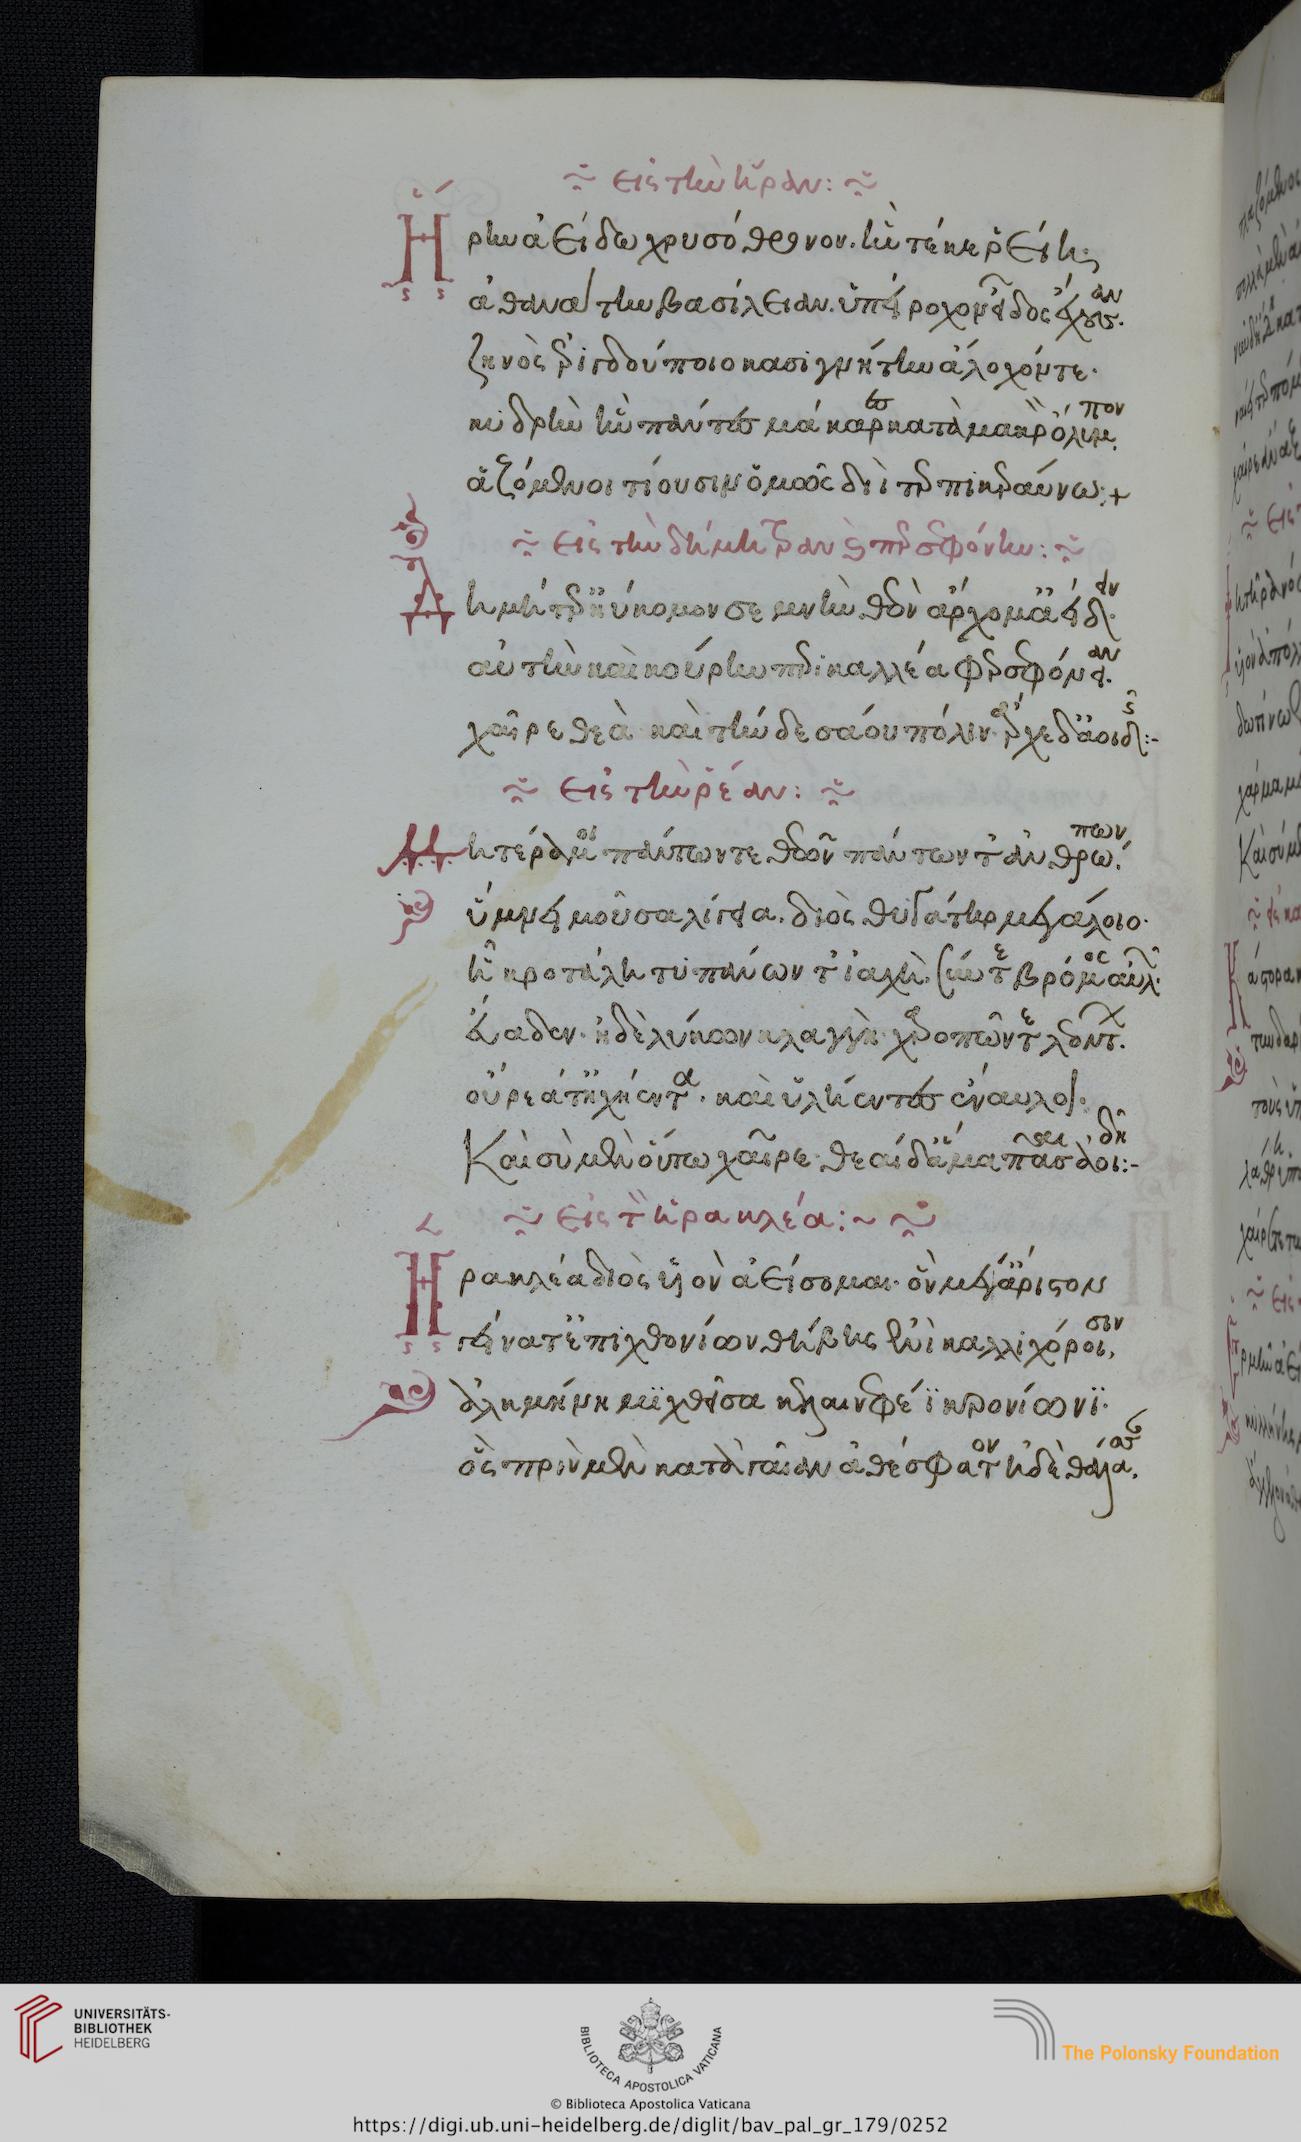 εἰς τὴν ἥραν:
Ἥρην ἀείδω χρυσόθρονον. ἣν τέκε ῥείη·
ἀθανάτην βασίλειαν. ὑπείροχον εἶδος ἔχουσαν.
ζηνὸς ἐριγδούποιο κασιγνήτην ἄλοχόν τε·
κυδρὴν ἣν πάντες μάκαρες κατὰ μακρὸν ὄλυμπον.
ἁζόμενοι τίουσιν ὁμῶς διὶ τερπικεραύνω:+
εἰς τὴν δήμητραν καὶ περσεφόνην:
Δημήτρ' ἠύκομον σεμνὴν θεὸν ἄρχομ' ἀείδειν.
αὐτὴν καὶ κούρην περικαλλέα φερσεφόνειαν.
χαῖρε θεὰ καὶ τήνδε σάου πόλιν ἄρχε δ' ἀοιδῆς:-
εἰς τὴν ῥέαν:
Μητέρα μοι πάντων τε θεῶν πάντων τ' ἀνθρώπων.
ὕμνει μοῦσα λίγεια. διὸς θυγάτηρ μεγάλοιο.
ἣ κροτάλη τυπάνων τ' ἰαχὴ, σύν τε βρόμος αὐλῶν.
εὔαδεν. ἠδὲ λύκων κλαγγὴ χαροπῶν τε λεόντων.
οὔρεά τ' ἠχήεντα. καὶ ὑλήεντες ἔναυλοι.
Καὶ σὺ μὲν οὕτω χαῖρε. θεαί δ' ἅμα πᾶσαι ἀοιδῆ:-
εἰς τὸν ἡρακλέα:~
Ἡρακλέα διὸς υἱὸν ἀείσομαι. ὃν μέγ' ἄριστον
γείνατ' ἐπιχθονίων θήβης ἔνι καλλιχόροισιν,
ἀλκμήνη μιχθεῖσα κελαινεφέϊ κρονίωνι.
ὃς πρὶν μὲν κατὰ γαῖαν ἀθέσφατον ἠδὲ θάλασσαν.
UNIVERSITÄTS-
BIBLIOTHEK
HEIDELBERG
BIBLIOTECA APOSTOLICA VATICANA
The Polonsky Foundation
© Biblioteca Apostolica Vaticana
https://digi.ub.uni-heidelberg.de/diglit/bav_pal_gr_179/0252